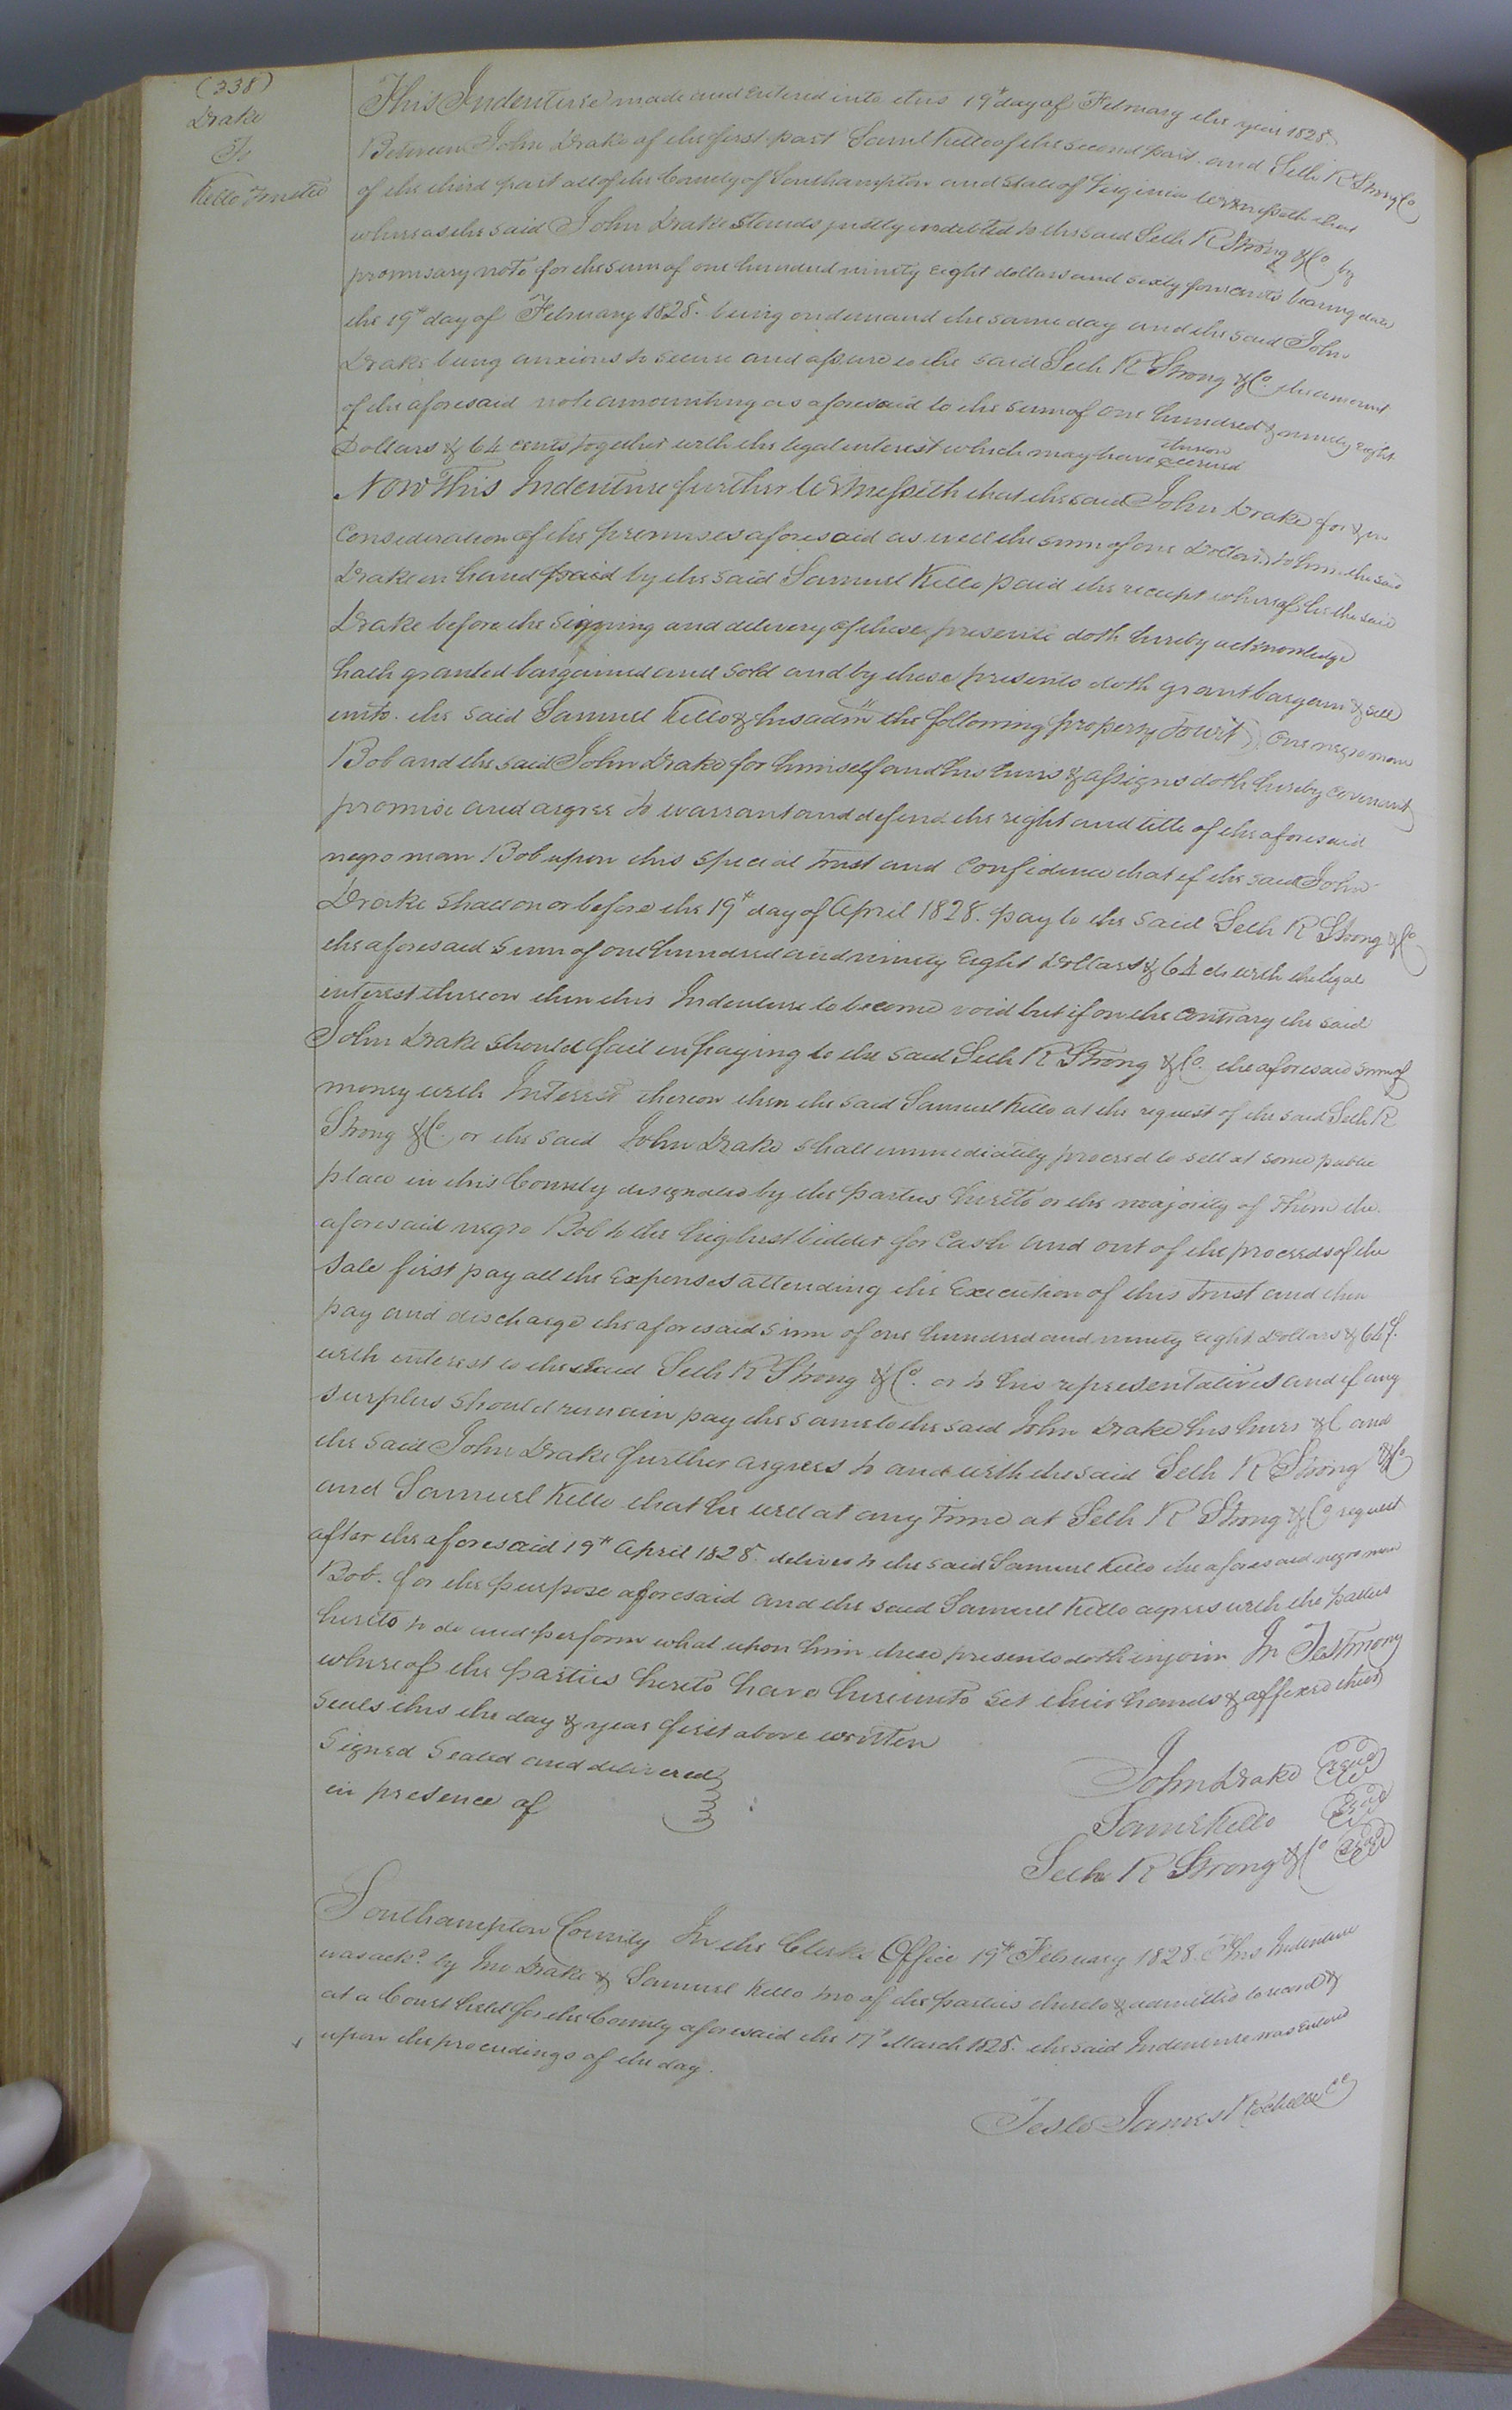 (338)
Drake
To
Kello Trustee
This Indenture made and entered into this 19th day of February the year 1828.
Between John Drake of the first part Saml Kello of the second part and Seth R Strong &Co
of the third part all of the County of Southampton and State of Virginia Witnesseth that
whereas the said John Drake stands justly indebted to the said Seth R Strong &Co by
promisary note for the sum of one hundred ninety eight dollars and sixty four cents bearing date
the 19th day of February 1828. being on demand the same day and the said John
Drake being anxious to secure and assure to the said Seth R Strong &Co. the amount
of the aforesaid note amounting as aforesaid to the sum of one hundred & ninety eight
Dollars & 64 cents together with the legal interest which may have thereon accrued
Now This Indenture further Witnesseth that the said John Drake for & in
Consideration of the premises aforesaid as well the sum of one Dollar to him the said
Drake in hand paid by the said Samuel Kello paid the receipt whereof he the said
Drake before the signing and delivery of these presents doth hereby acknowledge
hath granted bargained and sold and by these presents doth grant bargain & sell
unto. the said Samuel Kello & his adm the following property Towit, One negro man
Bob and the said John Drake for himself and his heirs & assigns doth hereby covenant
promise and argree to warrant and defend the right and title of the aforesaid
negro man Bob upon this special trust and confidence that if the said John
Drake shall on or before the 19th day of April 1828. pay to the said Seth R Strong &Co
the aforesaid sum of one hundred and ninety eight Dollars & 64 cts with the legal
interest thereon then this Indenture to become void but if on the contrary the said
John Drake should fail in paying to the said Seth R Strong &Co. the aforesaid sum of
money with Interest thereon then the said Samuel Kello at the request of the said Seth R
Strong &Co. or the said John Drake shall immediately proceed to sell at some public
place in this County designated by the parties hereto or the majority of them the
aforesaid negro Bob to the highest bidder for Cash and out of the proceeds of the
sale first pay all the Expenses attending the Execution of this trust and then
pay and discharge the aforesaid sum of one hundred and ninety eight Dollars & 64 ¢.
with interest to the said Seth R Strong &Co. or to his representatives and if any
surplus should remain pay the same to the said John Drake his heirs &C and
the said John Drake further argrees to and with the said Seth R Strong &Co
and Samuel Kello that he will at any time at Seth R Strong &Co request
after the aforesaid 19th April 1828. deliver to the said Samuel Kello the aforesaid negro man
Bob. for the purpose aforesaid and the said Samuel Kello agrees with the parties
hereto to do and perform what upon him these presents doth injoin In Testimony
whereof the parties hereto have hereunto set their hands & affixed their
seals this the day & year first above written
Signed Sealed and delivered
in presence of
John Drake Seal
Saml Kello Seal
Seth R Strong &Co Seal
Southampton County In the Clerks Office 19th February 1828. This Indenture
was ackd. by Jno Drake & Samuel Kello two of the parties thereto & admitted to record &
at a Court held for the County aforesaid the 17th March 1828. the said Indenture was entered
upon the proceedings of the day.
Teste James Rochelle CC